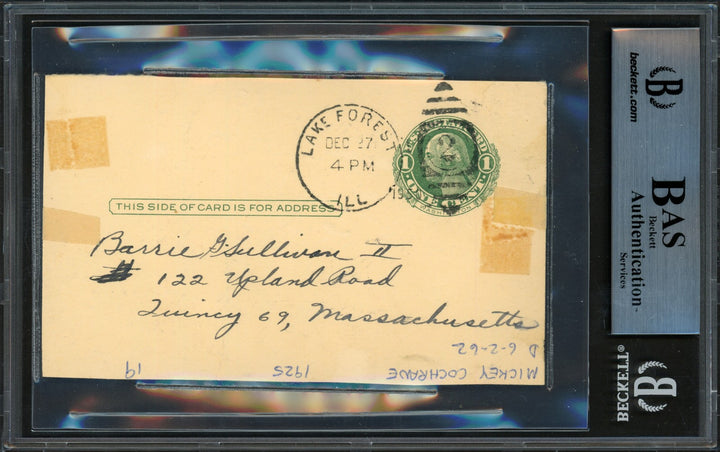 LAKE FOREST
DEC 27
4 PM
ILL
19
1
1
ONE CENT
WASHINGTON
THIS SIDE OF CARD IS FOR ADDRESS
Barrie G Sullivan II
# 122 Upland Road
Quincy 69, Massachusetts
D 6-2-62
MICKEY COCHRANE
1925
19
B
beckett.com
BAS
Beckett
Authentication
Services
B
BECKETT®